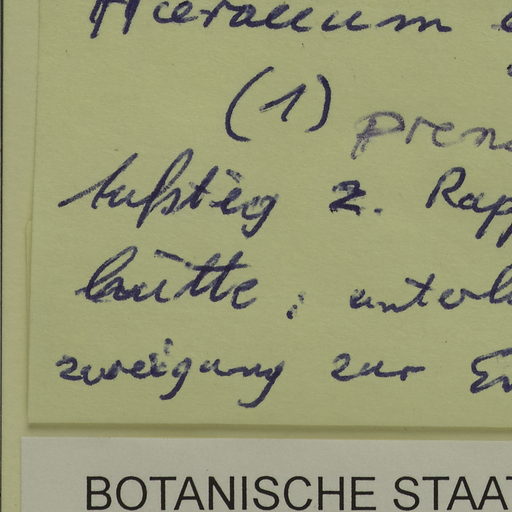 Hieracium
(1) pren
Aufstieg z. Rapp
hütte, unterh
zweigung zur En
BOTANISCHE STAAT